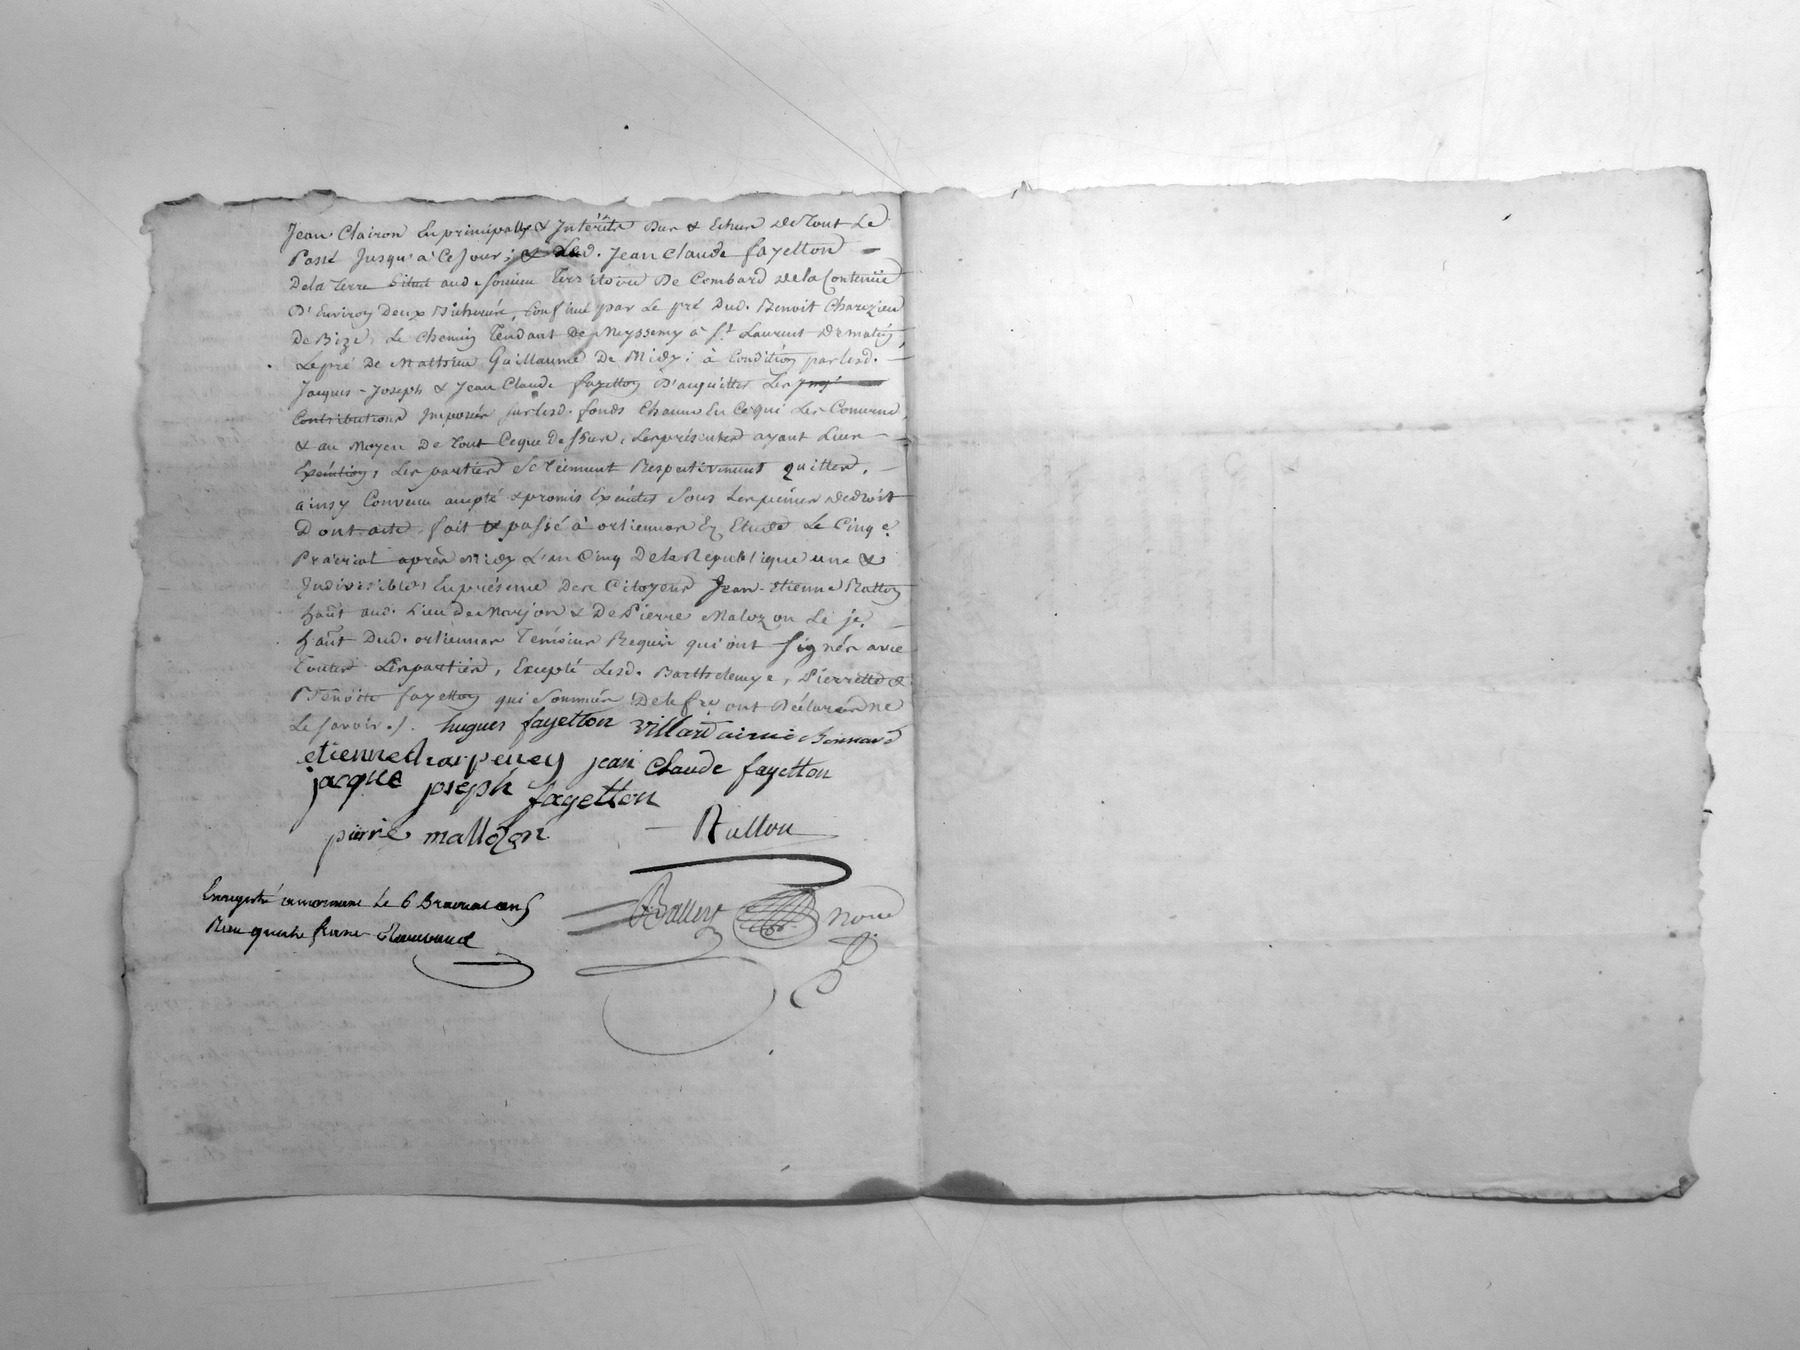 Jean Clairon Les principaux & Intérêts Dus & Echus de Tout Le
Passé Jusqu'à Ce Jour; & Led. Jean Claude fayetton
De la Terre Située aud. Territoire De Combard de la Contenüe
D'Environ Deux Bicherées, Confiné par Le pré Dud. Benoit Charezieu
De Bize, Le Chemin Tendant De Meyssemy à St. Laurent
Le pré De Mathieu Guillaume De Midy; à Condition par Lesd.
Jacques-Joseph & Jean Claude fayetton D'acquitter Les
Contributions Imposées sur Lesd. fonds Chacun En Ce qui Les Concerne,
& au Moyen De Tout Ceque Dessus, Les présentes ayant Leur
Exécution, Les parties Se Tiennent Respectivement quittes,
ainsy Convenu accepté & promis Exécuter Sous Les peines de droit
Dont acte. fait & passé à ortiennas En Etude Le Cinq
Prairial après Midy L'an Cinq De la Republique une &
Indivisible, En présence Des Citoyens Jean-Etienne Rallon
aud. Lieu de & De Pierre Malozon Le je.
Dud. ortiennas Témoins Requis qui ont signés avec
Toutes Les parties, Excepté Lesd. Barthelemye, Pierrette &
Benoite fayetton qui Sommées De le fre ont Déclarés ne
Le savoir ./. hugues fayetton Villard
etienne charpeney jean claude fayetton
jacque joseph fayetton
pierre mallozon Rallon
Enregistré Le 6 an 5
Reçu quatre francs
Nore